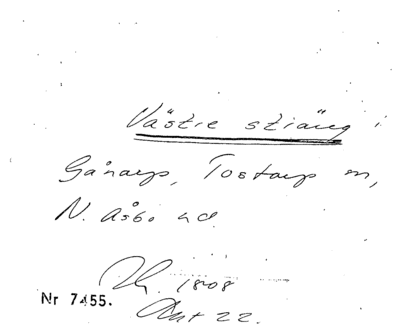 Västre stiäng
Gånarp, Tostarp sn,
N. Åsbo hd.
1808
Nr 7455.
Akt 22.